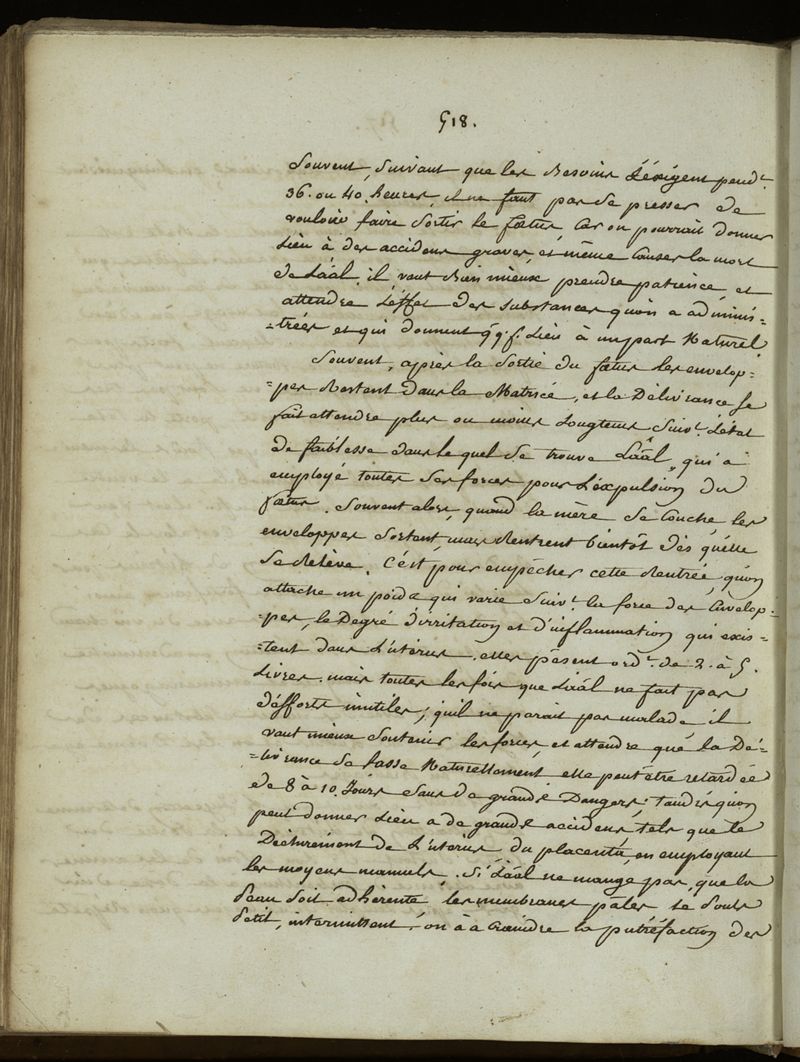 518.
Souvent, Suivant que les Besoins L'éxigent pend.t
36. ou 40. heures, il ne faut pas se presser de
vouloir faire Sortir le fœtus Car on pourrait donner
Lieu à des accidens graves, et même Causer la mort
de L'aâl, il vaut Bien mieux prendre patience et
attendre L'éffet des substances qu'on a adminis=
=trées et qui donnent q.q.f. Lieu à un part Naturel
Souvent, après la Sortie du fœtus les envelop=
=pes Restent dans la Matrice, et la Délivrance Se
fait attendre plus ou moins Longtems Suiv.t L'état
de faiblesse dans le quel Se trouve L'aâl, qui a
employé toutes Ses forces pour L'éxpulsion du
fœtus. Souvent alors, quand la mère Se Couche, les
enveloppes Sortent, mais Rentrent bientôt dès qu'elle
Se Relève. C'ést pour empêcher cette Rentrée, qu'on
attache un poids qui varie Suiv.t la force des Envelop=
=pes, le Degré d'irritation et d'inflammation qui exis=
=tent dans L'utérus. elles pèsent ord.t de 2. à 5.
Livres. mais toutes les fois que L'aâl ne fait pas
d'éfforts inutiles, qu'il ne parait pas malade il
vaut mieux Soutenir les forces, et attendre que la Dé=
=livrance Se fasse Naturellement elle peut être retardée
de 8 à 10. Jours Sans de grands Dangers. tandis qu'on
peut donner Lieu a de grands accidens, tels que le
Déchirement de L'utérus du placenta, en employant
les moyens manuels. Si L'aâl ne mange pas, que la
peau Soit adhérente, les membranes pâles le Pouls
Petit, intermittent, on à a Craindre la putréfaction des